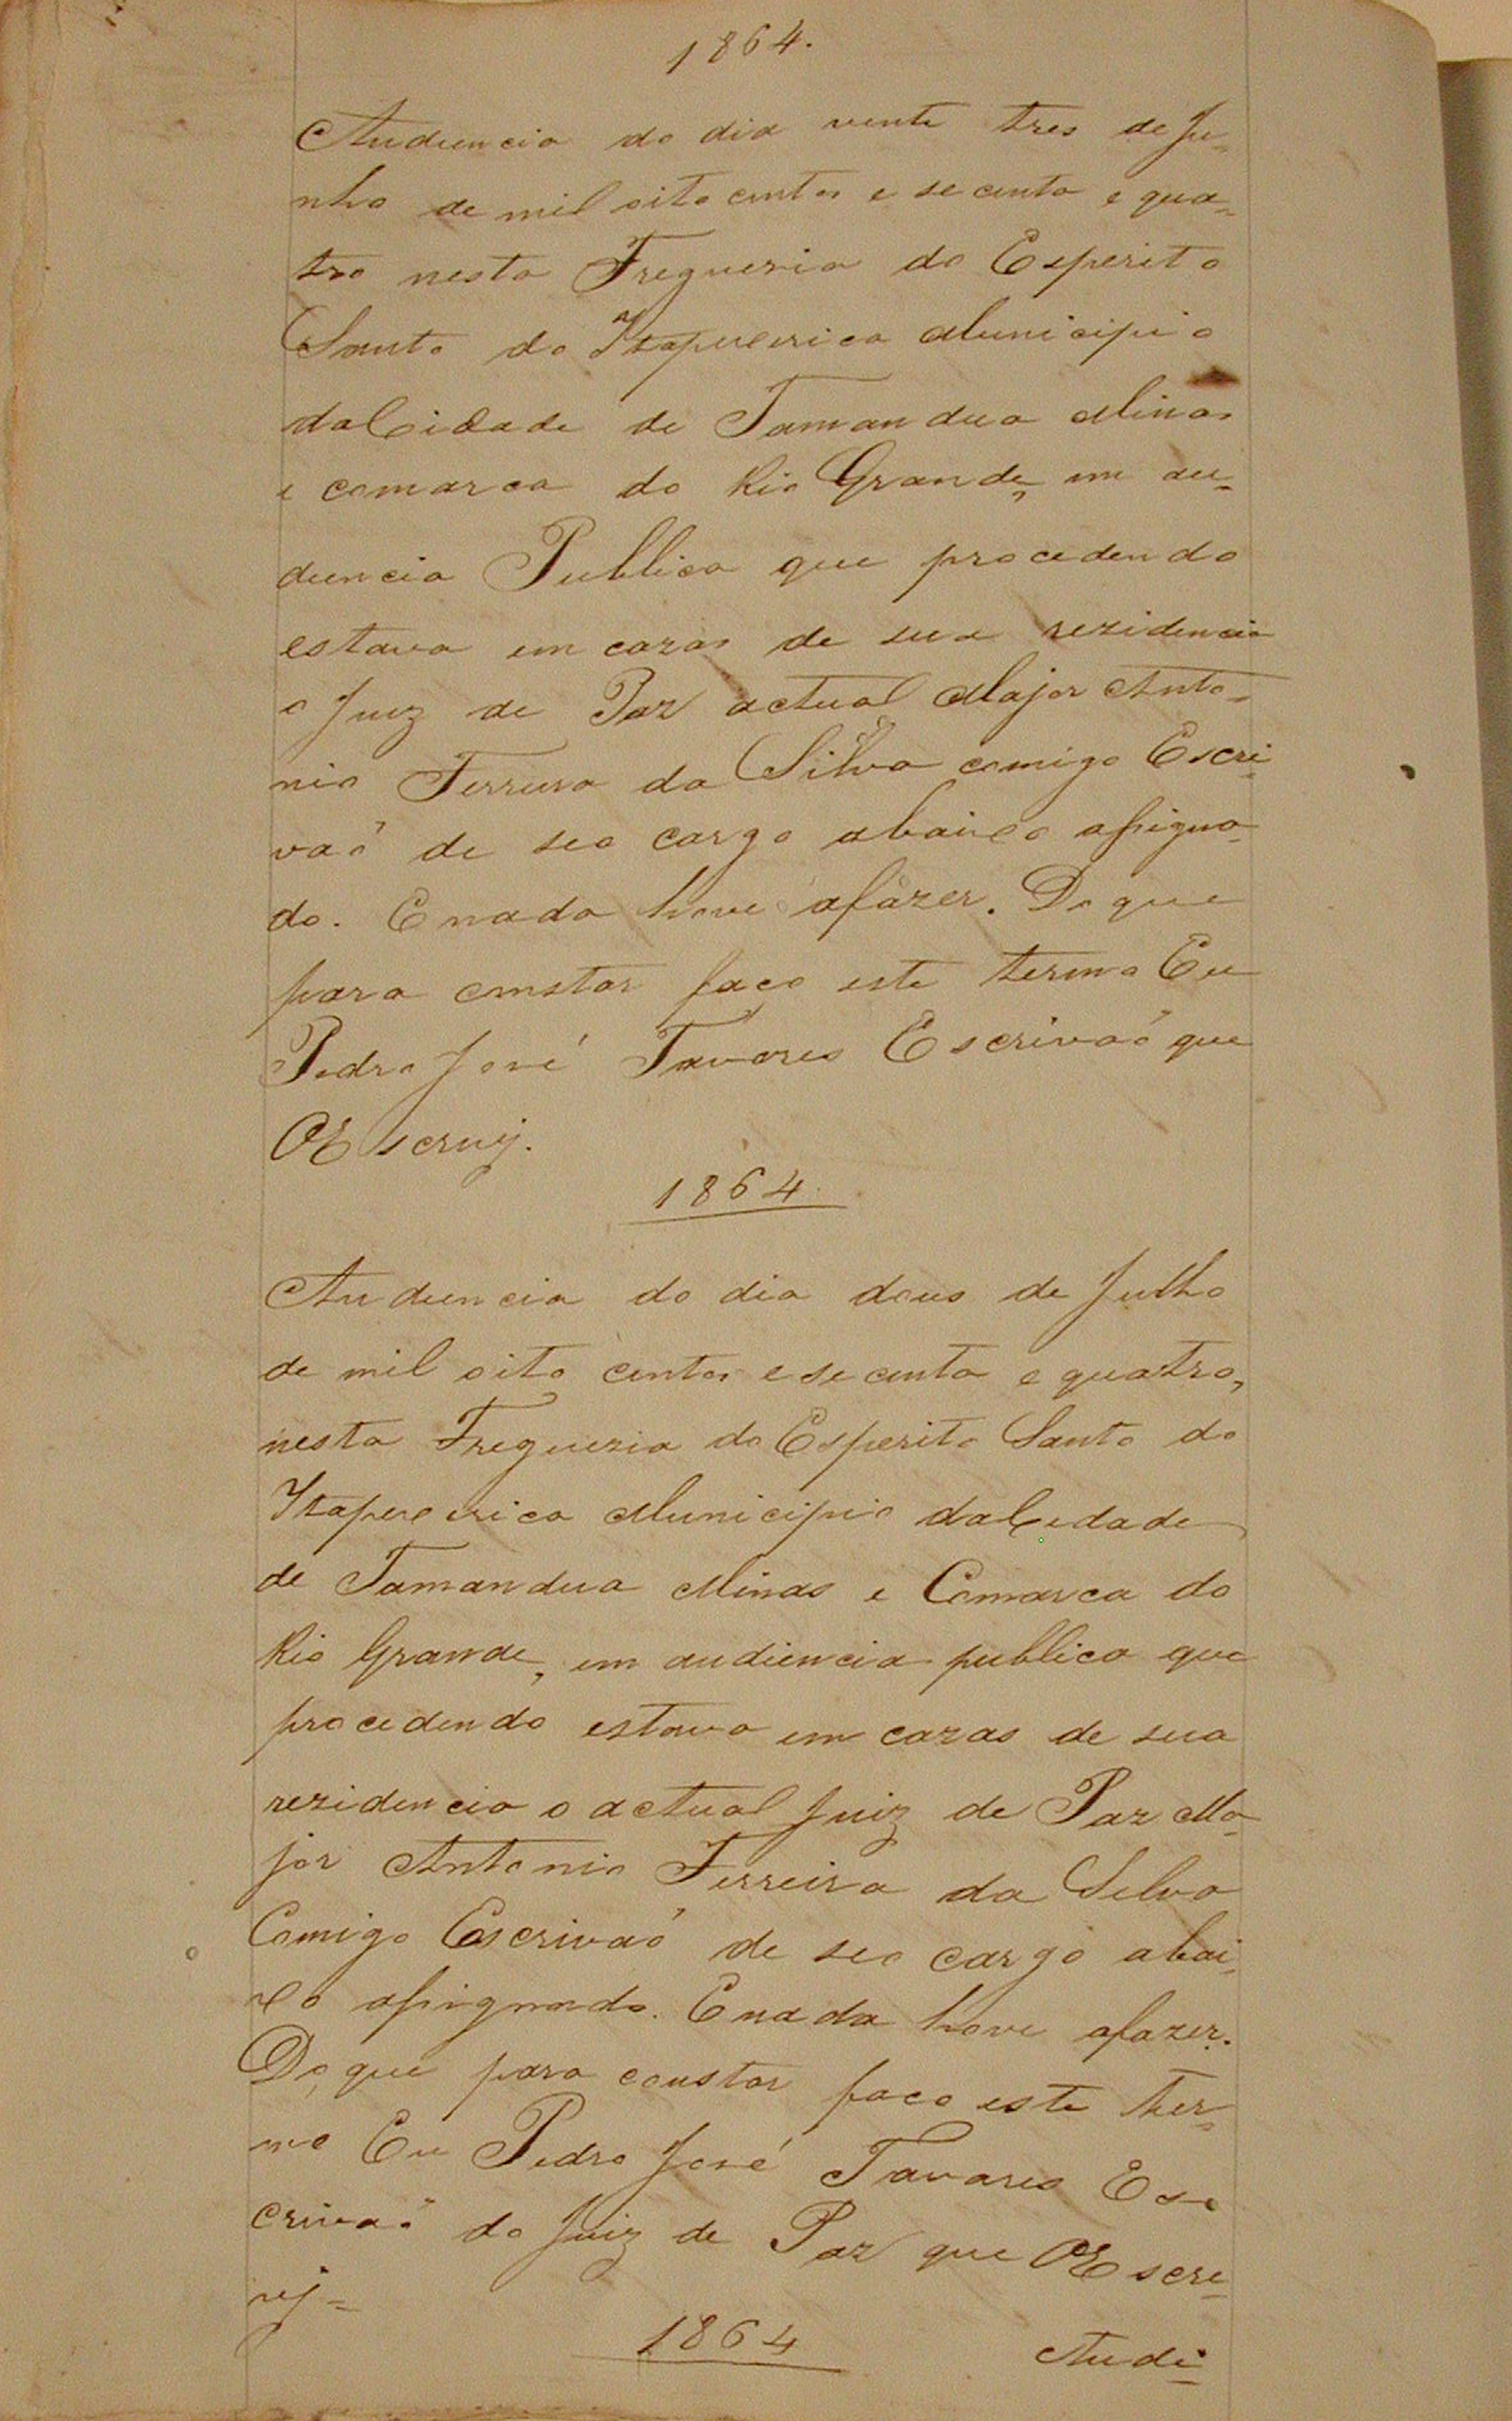 1864.
Audiencia do dia vente tres de Ju-
nho de mil oito centos e secenta e qua-
tro nesta Freguesia do Esperito
Santo do Itapecerica Municipio
da Cidade de Tamandua Minas
e comarca do Rio Grande, em au-
diencia Publica que procedendo
estava em cazas de sua rezidencia
o Juiz de Paz actual Major Anto-
nio Ferreira da Silva comigo Escri-
vaõ de seo cargo abaixo assigna-
do. E nada hove afazer. Do que
para constar faço este termo Eu
Pedro José Tavares Escrivaõ que
O Escrevij.
1864.
Audiencia do dia dous de Julho
de mil oito centos e secenta e quatro,
nesta Freguezia do Esperito Santo do
Itapecerica Municipio da Cedade
de Tamandua Minas e Comarca do
Rio Grande, em audiencia publica que
procedendo estava em cazas de sua
rezidencia o actual Juiz de Paz Ma-
jor Antonio Ferreira da Selva
Comigo Escrivaõ de seo cargo abai-
xo assignado. E nada hove afazer.
Do que para constar faco este ther-
mo Eu Pedro José Tavares Es-
crivaõ do Juiz de Paz que O Escre-
vij-
1864
Audi-